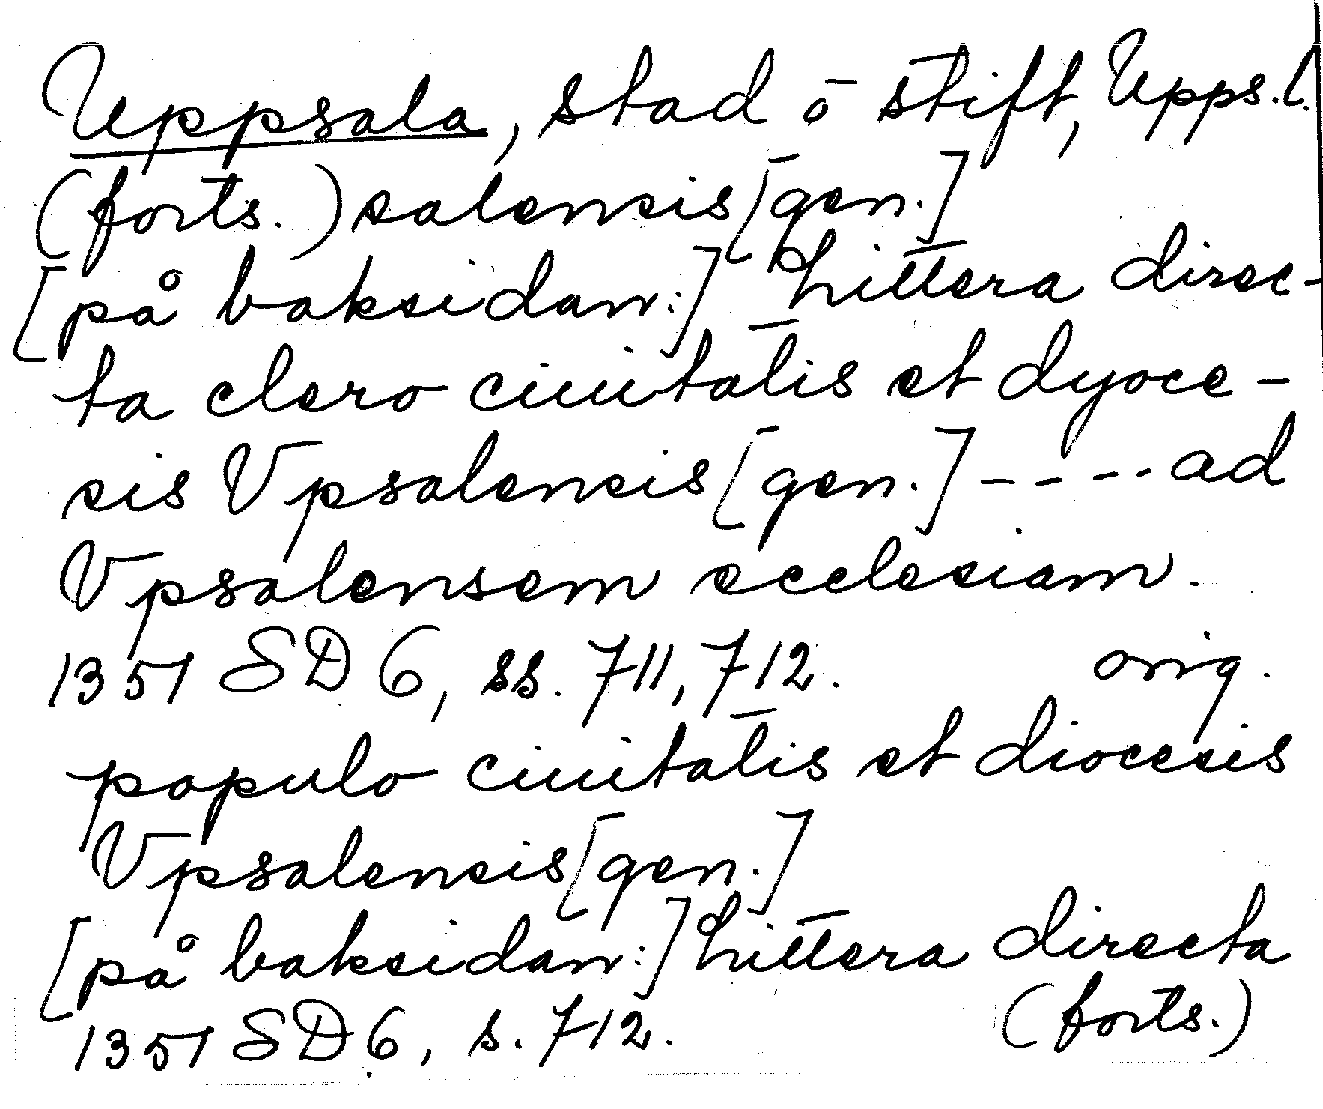 Uppsala, stad o stift, Upps.l.
(forts.) salensis [gen.]
[på baksidan:] Littera direc-
ta clero ciuitatis et dyoce-
sis Vpsalensis [gen.] ---- ad
Vpsalensem ecclesiam.
1351 SD 6, ss. 711, 712. orig.
populo ciuitatis et diocesis
Vpsalensis [gen.]
[på baksidan:] Littera directa
1351 SD 6, s. 712. (forts.)